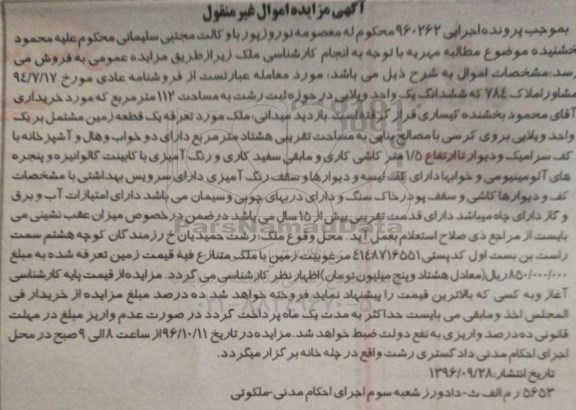 آگهی مزایده اموال غیر منقول
بموجب پرونده اجرایی ۹۶۰۲۶۲ محکوم له معصومه نوروزپور با وکالت مجتبی سلیمانی محکوم علیه محمود
خشنیده موضوع مطالبه مهریه با توجه به انجام کارشناسی ملک زیر از طریق مزایده عمومی به فروش می
رسد: مشخصات اموال به شرح ذیل می باشد: مورد معامله عبارتست از فروشنامه عادی مورخ ۹۴/۷/۱۷
مشاور املاک ۷۸۴ که ششدانگ یک واحد ویلایی در حوزه ثبت رشت به مساحت ۱۱۲ متر مربع که مورد خریداری
آقای محمود بخشنده کیساری قرار گرفته است. بازدید میدانی: ملک مورد تعرفه یک قطعه زمین مشتمل بر یک
واحد ویلایی بروی کرسی با مصالح بنایی به مساحت تقریبی هشتاد متر مربع دارای دو خواب و هال و آشپزخانه با
کف سرامیک و دیوار تا ارتفاع ۱/۵ متر کاشی کاری و مابقی سفید کاری و رنگ آمیزی با کابینت گالوانیزه و پنجره
های آلومینیومی و خوابها دارای کف لیسه و دیوارها و سقف رنگ آمیزی دارای سرویس بهداشتی با مشخصات
کف و دیوارها کاشی و سقف پودر خاک سنگ و دارای دربهای چوبی و سیمان می باشد دارای امتیازات آب و برق
و گاز دارای چاه میباشد دارای قدمت تقریبی بیش از ۱۵ سال می باشد در ضمن در خصوص میزان عقب نشینی می
بایست از مراجع ذی صلاح استعلام بعمل آید. محل وقوع ملک: رشت حمیدیان خ رزمندگان کوچه هشتم سمت
راست بن بست اول کد پستی ۴۱۴۸۷۱۶۵۵۱ مرغوبیت زمین با ملک متنازع فیه قیمت زمین تعرفه شده به مبلغ
۸۵۰/۰۰۰/۰۰۰ ریال (معادل هشتاد و پنج میلیون تومان) اظهار نظر کارشناسی می گردد. مزایده از قیمت پایه کارشناسی
آغاز و به کسی که بالاترین قیمت را پیشنهاد نماید فروخته خواهد شد ده درصد مبلغ مزایده از خریدار فی
المجلس اخذ و مابقی می بایست حداکثر به مدت یک ماه پرداخت گردد در صورت عدم واریز مبلغ در مهلت
قانونی ده درصد واریزی به نفع دولت ضبط خواهد شد. مزایده در تاریخ ۹۶/۱۰/۱۱ از ساعت ۸ الی ۹ صبح در محل
اجرای احکام مدنی دادگستری رشت واقع در چله خانه برگزار میگردد.
تاریخ انتشار: ۱۳۹۶/۰۹/۲۸
۵۶۵۳ ر م الف ث - دادورز شعبه سوم اجرای احکام مدنی - ملکوتی
ParsNamadData